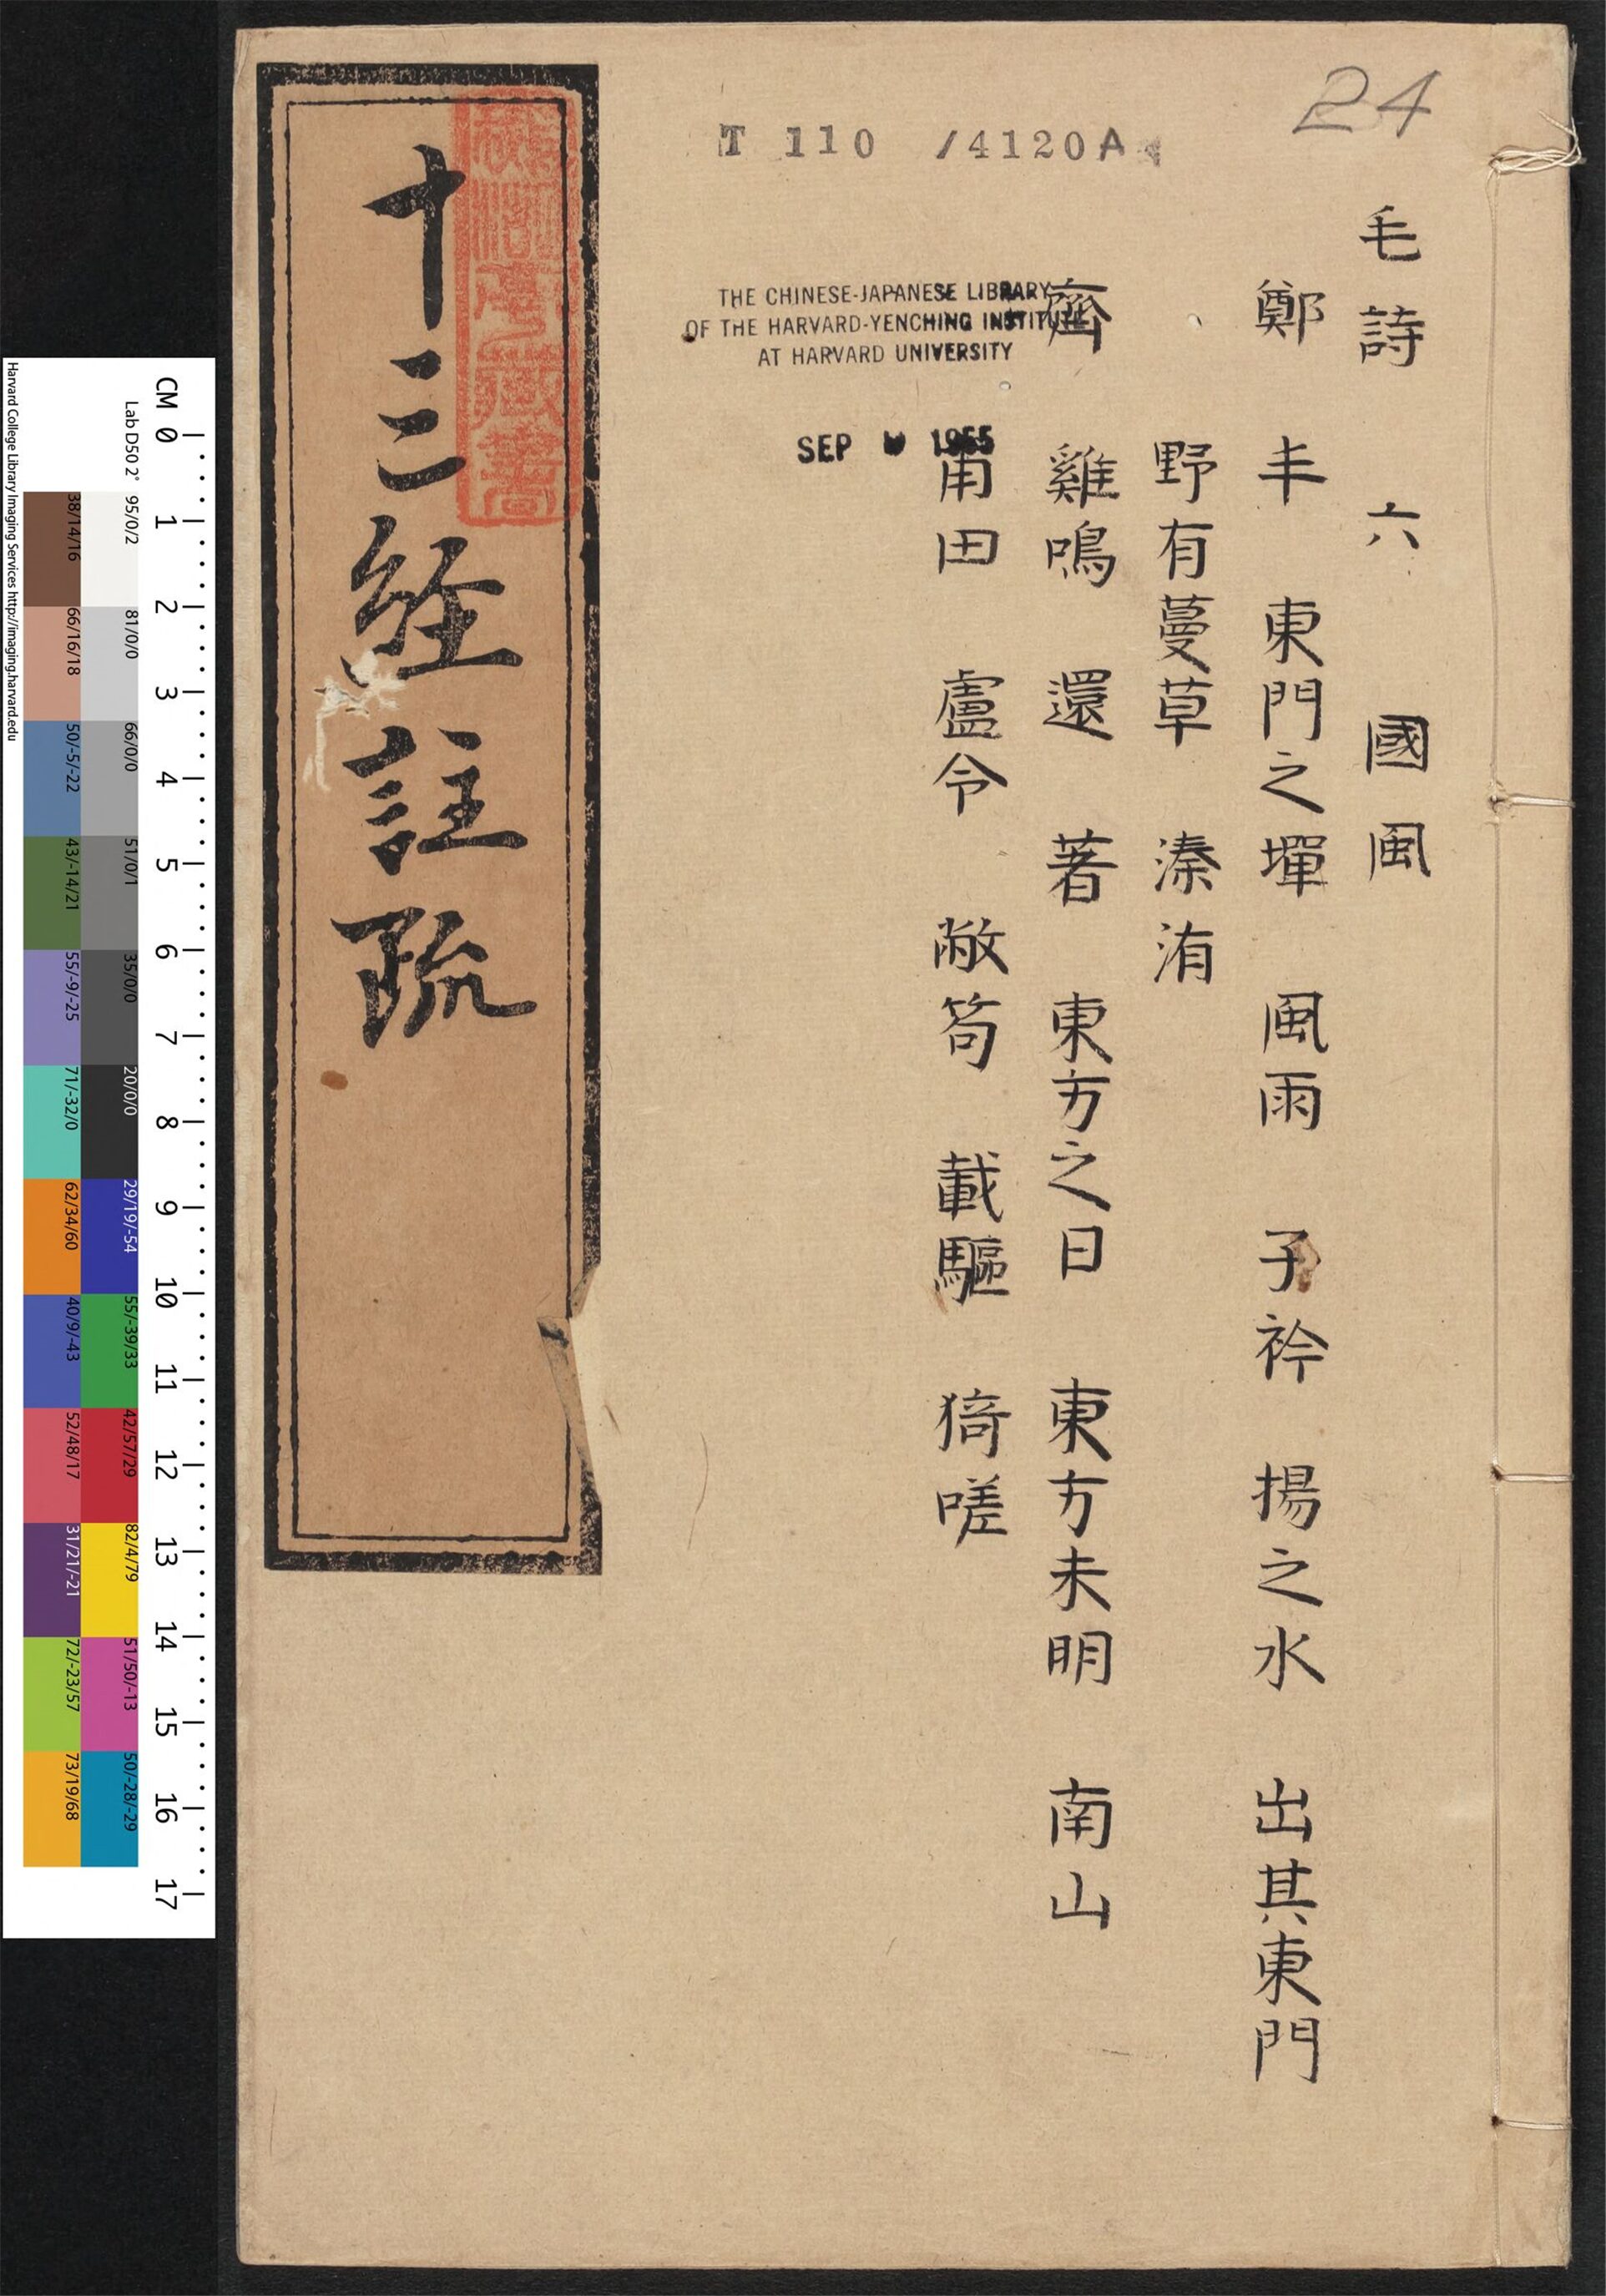 24
T 110 /4120A
毛詩 六 國風
鄭 丰 東門之墠 風雨 子衿 揚之水 出其東門
野有蔓草 溱洧
齊 雞鳴 還 著 東方之日 東方未明 南山
甫田 盧令 敝笱 載驅 猗嗟
THE CHINESE-JAPANESE LIBRARY
OF THE HARVARD-YENCHING INSTITUTE
AT HARVARD UNIVERSITY
SEP 1955
十三経註疏
CM 0 1 2 3 4 5 6 7 8 9 10 11 12 13 14 15 16 17
Lab D50 2°
95/0/2
81/0/0
66/0/0
51/0/1
35/0/0
20/0/0
29/19/-54
55/-39/33
42/57/29
82/4/79
51/50/-13
50/-28/-29
38/14/16
66/16/18
50/-5/-22
43/-14/21
55/-9/-25
71/-32/0
62/34/60
40/9/-43
52/48/17
31/21/-21
72/-23/57
73/19/68
Harvard College Library Imaging Services http://imaging.harvard.edu